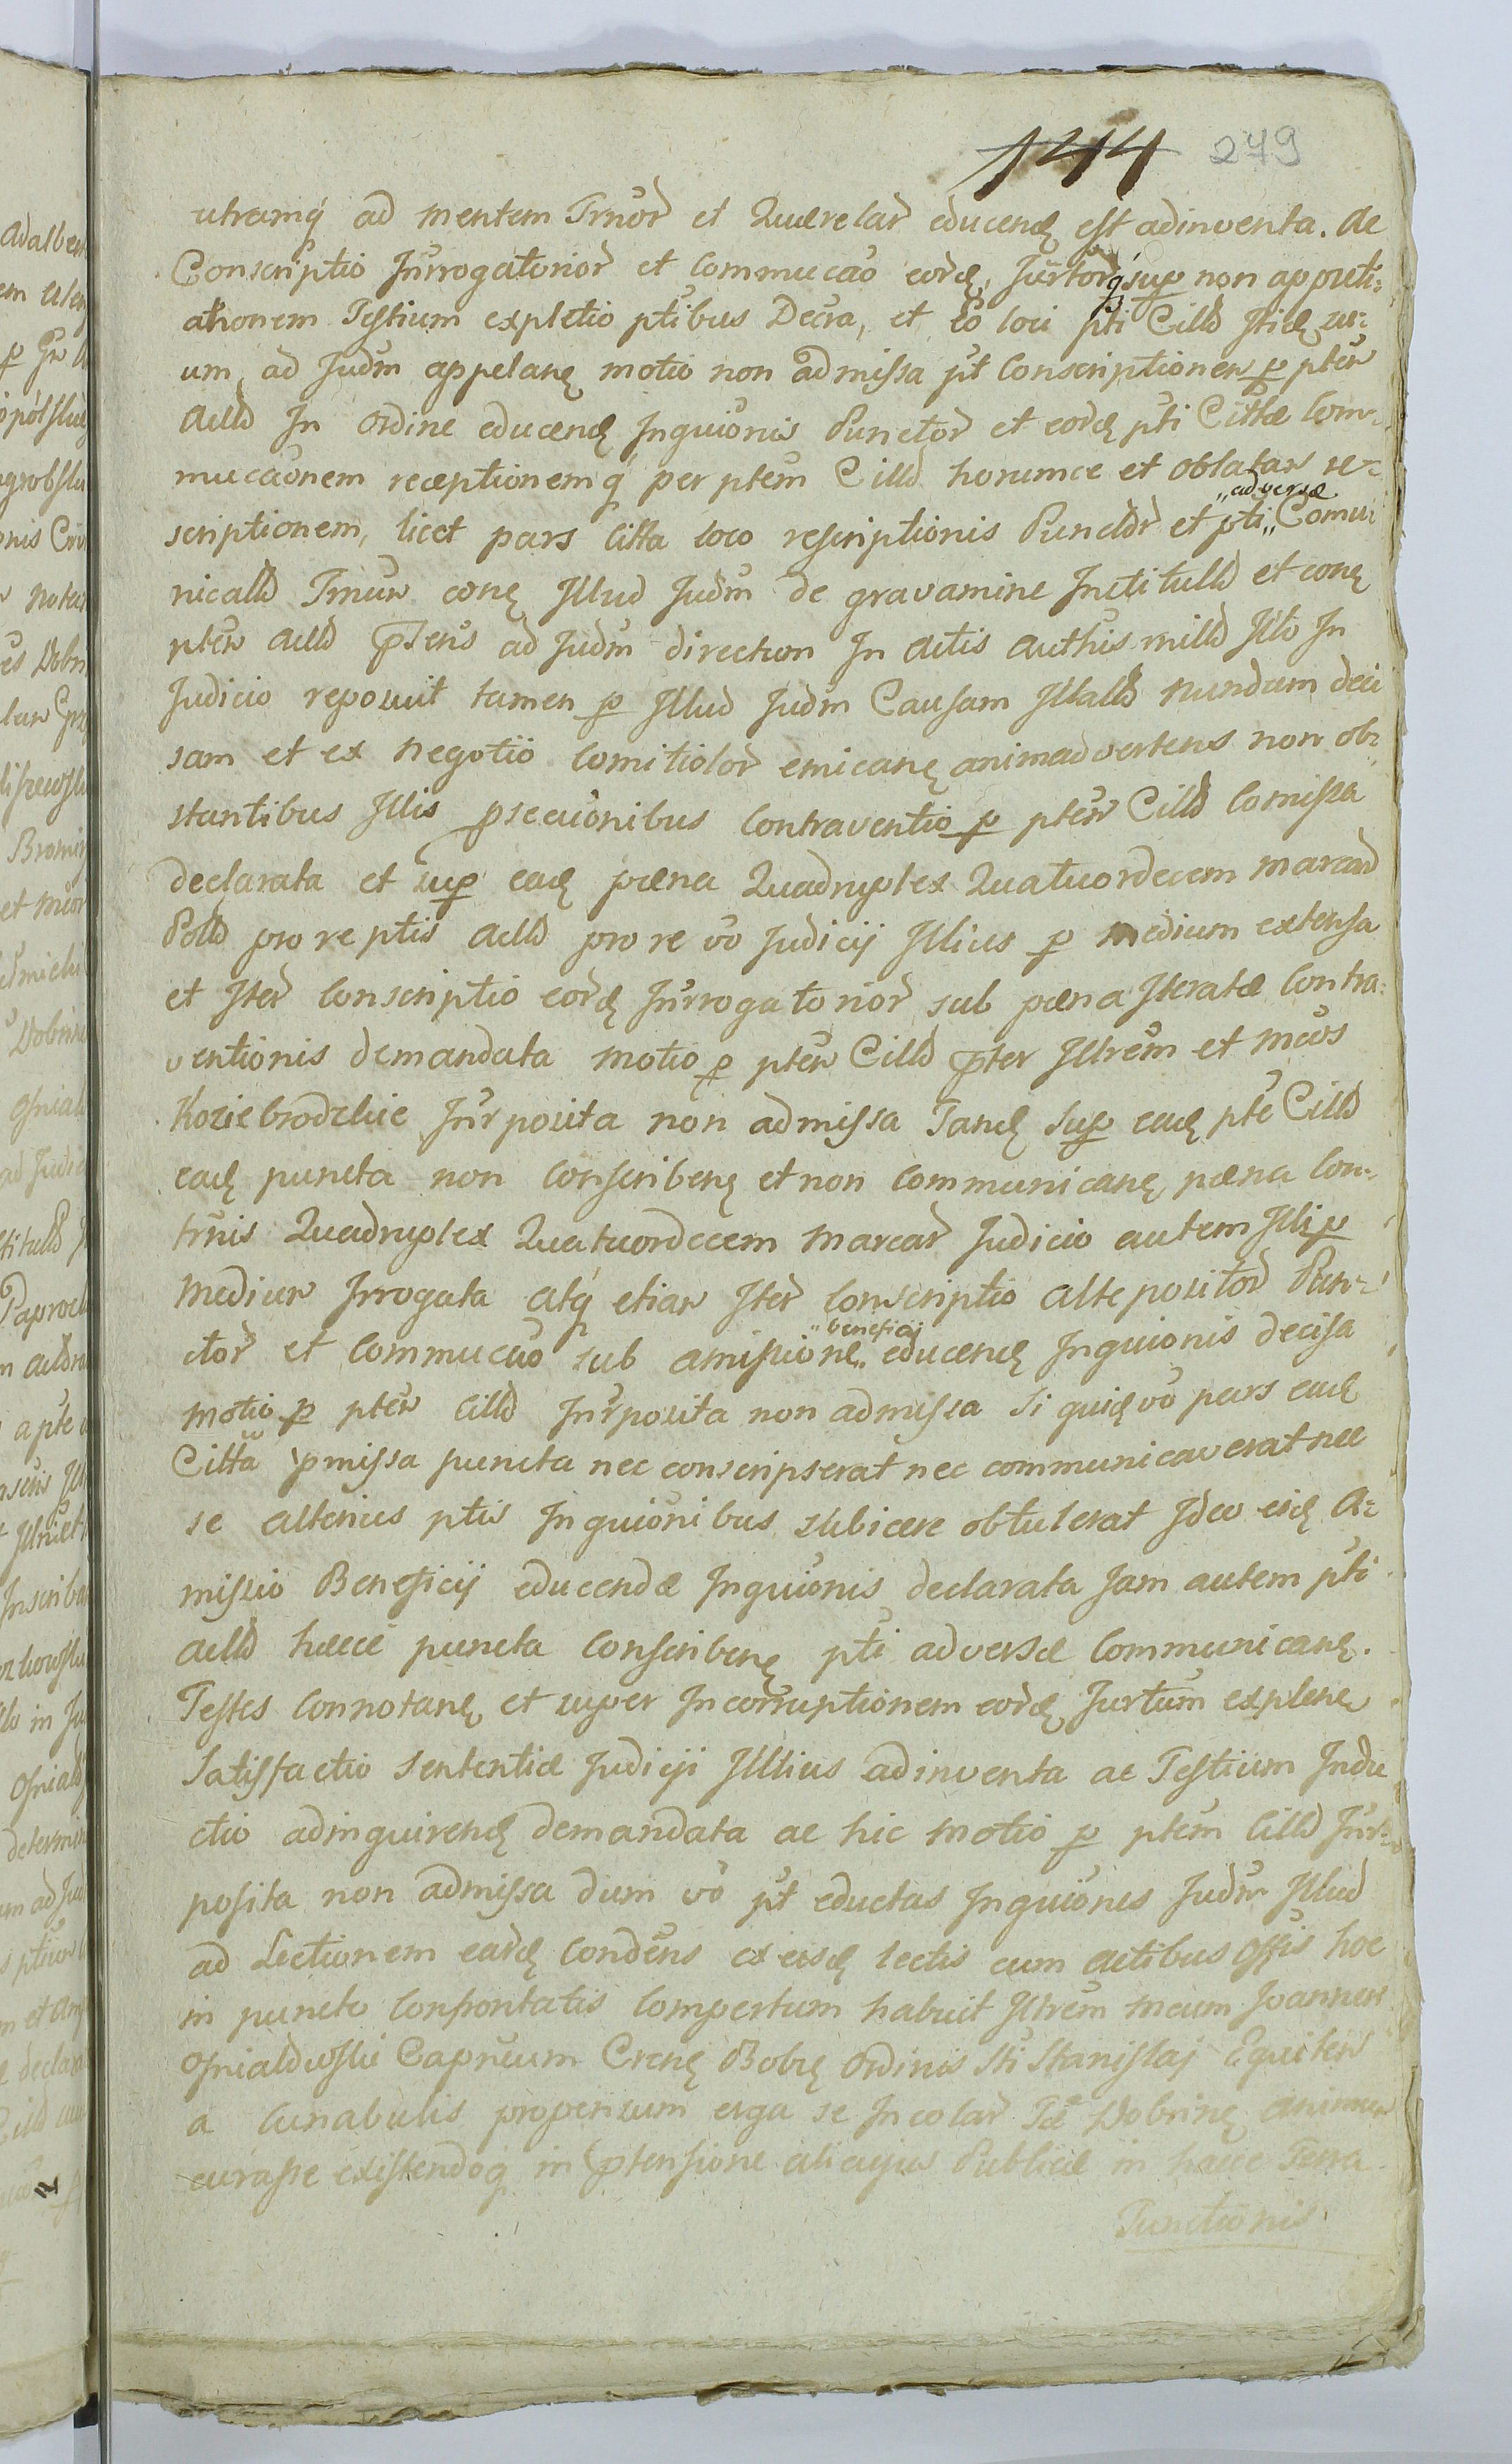 144 279
utramq́ ad mentem Trnor̃ et Querelar̃ educenđ est adinventa. Ac
Conscriptio Jnrrogatorior̃ et commucão eorđ, Jurtorq́ sup non appreti-
ationem Testium expletio ptibus Decra, et eo loci pti Cilld
um, ad Judm appelanđ motio non admissa p̃t Conscriptionem p ptem
Aelld Jn Ordine educenđ Jnquionis Punctor̃ et eorđ pti Cittæ Com-
mucãonem receptionemq́ per ptem Cilld horumce et oblatam re-
scriptionem, licet pars Citta loco rescriptionis Punctor̃ et pti „adversæ„ Comui
nicalld Trnum conđ Jllud Judm de gravamine Jnctitulld et conđ
ptem aelld p̃tens ad Judm directum Jn Actis authis milld Jllo Jn
Judicio reposuit tamen p Jllud Judm Causam Jllalld nundum deci
sam et ex negotio Comitiolor̃ emicanđ animadvertens non ob-
stantibus Jllis psecuionibus Contraventio p ptem Cilld Comissa
declarata et sup eađ pæna Quadruplex Quatuordecem marcar̃
Polld pro re ptis aelld pro re vo Judicij Jllius p medium extensa
et Jter̃ Conscriptio eorđ Jnrrogatorior̃ sub pæna Jteratæ Contra-
ventionis demandata motio p ptem Cilld p̃ter Jllrem et mcos
Koziebrodzkie Jnrposita non admissa Tanđ sup eađ pte Cilld
eađ puncta non Conscribenđ et non Communicanđ, pæna Con-
trnis Quadruplex Quatuordecem Marcar̃ Judicio autem Jlli p
Medium Jrrogata atq́ etiam Jter̃ Conscriptio alte positor̃ Pun-
ctor̃ et Commucão sub amissione „beneficij„ educenđ Jnquionis decisa
motio p ptem Cilld Jnrposita non admissa si quiđ vo pars eađ
Citta p̃missa puncta nec conscripserat nec communicaverat nec
se alterius ptis Jnquionibus subicere obtulerat Jdeo eiđ A-
missio Beneficij educendæ Jnquionis declarata Jam autem pti
aelld hæcce puncta Conscribenđ pti adversæ Communicanđ.
Testes Connotanđ et super Jncorruptionem eorđ Jurtum explenđ
Satisfactio Sententiæ Judicij Jllius adinventa ac Testium Jndu
ctio adinquirenđ demandata ac hic motio p ptem Cilld Jnr-
posita non admissa dum vo p̃t eductas Jnquiones Judm Jllud
ad Lectionem earđ Condens ex eisđ lectis cum actibus offis hoc
in puncto Confrontatis Compertum habuit Jllrem mcum Joannem
Ośniałowski Capneum Crenđ Bobrđ Ordinis Sti Stanislaj Equitem
a Cunabulis propensum erga se Jncolar̃ Tæ Dobrinđ animum
curasse existendoq́ in p̃tensione alicujus Publicæ in hacce Terra
Functionis